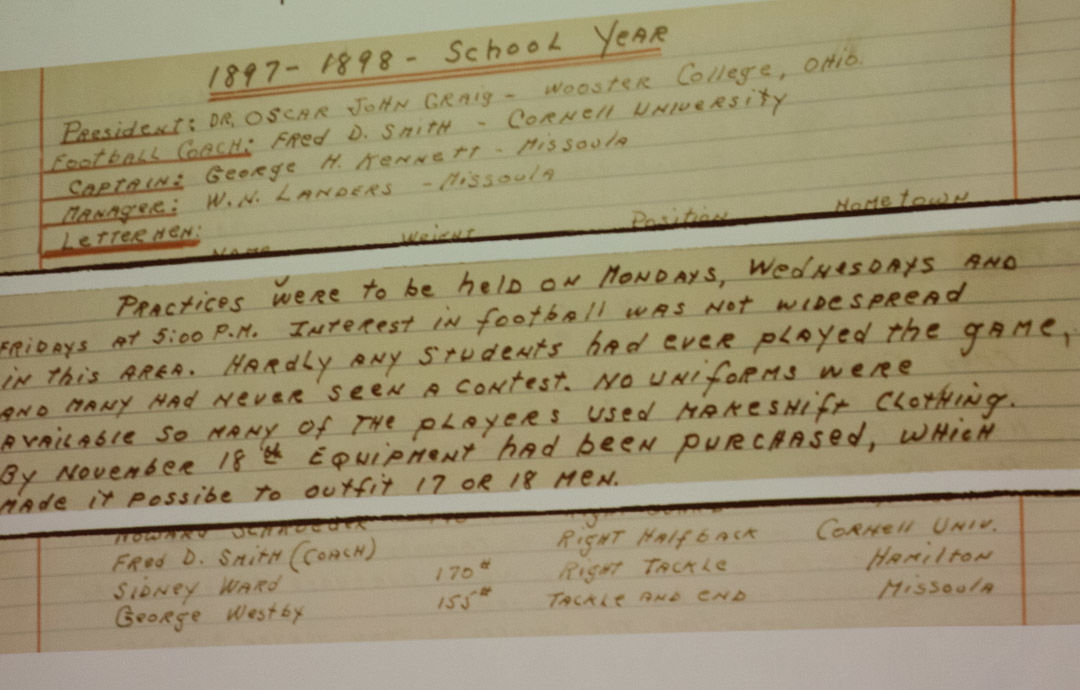 1897- 1898 - School Year
President: Dr. Oscar John Craig - Wooster College, Ohio.
Football Coach: Fred D. Smith - Cornell University
Captain: George H. Kennett - Missoula
Manager: W.N. Landers - Missoula
Lettermen:
Name Weight Position Hometown
Practices were to be held on Mondays, Wednesdays and
Fridays at 5:00 P.M. Interest in football was not widespread
in this area. Hardly any students had ever played the game,
and many had never seen a contest. No uniforms were
available so many of the players used makeshift clothing.
By November 18th equipment had been purchased, which
made it possibe to outfit 17 or 18 men.
Howard Schroeder Right
Fred D. Smith (Coach) Right Halfback Cornell Univ.
Sidney Ward 170# Right Tackle Hamilton
George Westby 155# Tackle and end Missoula